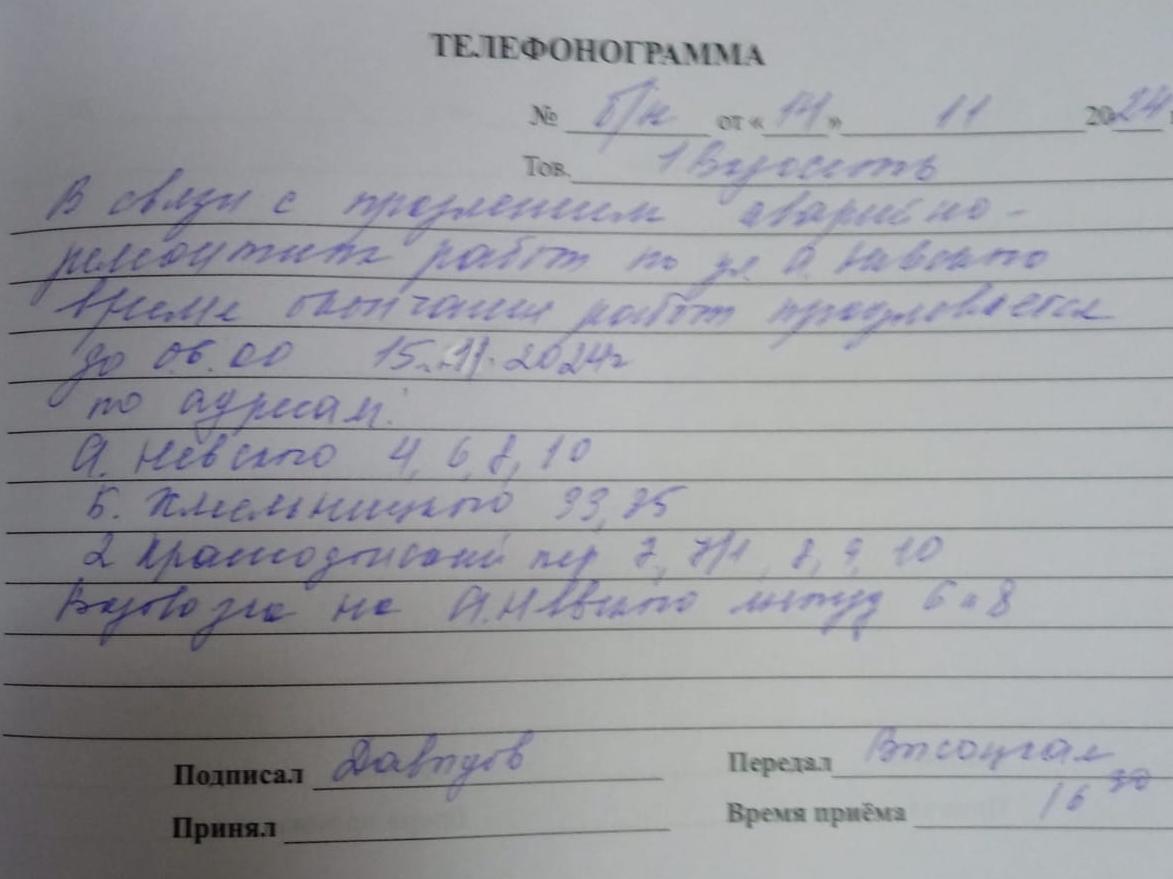 ТЕЛЕФОНОГРАММА
№ б/н от «14» 11 2024
Тов.
В связи с продлением аварийно-
ремонтных работ по ул. А. Невского
время окончания работ продлевается
до 06.00 15.11.2024г
по адресам:
А. Невского 4, 6, 8, 10
Б. Хмельницкого 33, 35
2 Краснодонский пер 7, 7/1, 8, 9, 10
на А. Невского между 6 и 8
Подписал Давыдов Передал Высоцкая
Принял Время приёма 16 30